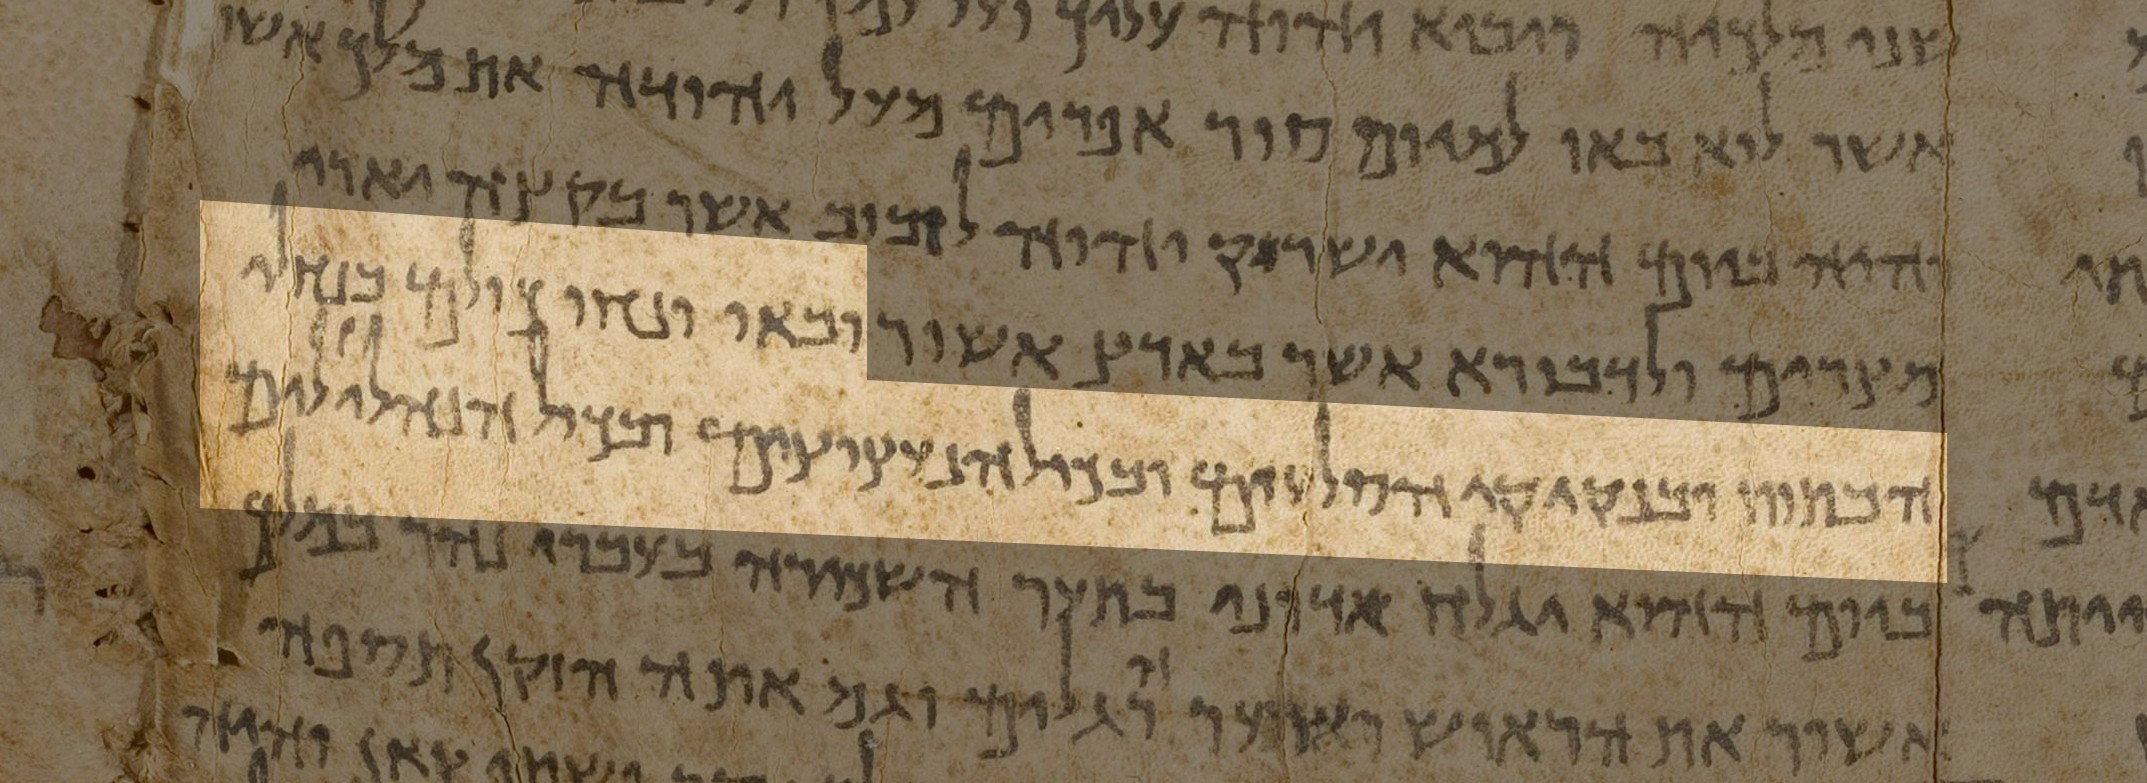 שני מלכיה ויביא יהוה עליך ועל עמך
אשר לוא באו למיום סור אפרים מעל יהודה את מלך אשור
והיה ביום ההוא ישרוק יהוה לזבוב אשר בקצה יאורי
מצרים ולדבורא אשר בארץ אשור ובאו ונחו כולם בנחלי
הבתות ובנקיקי הסלעים ובכול הנעצוצים ובכול הנהלולים
ביום ההוא יגלח אדוני בתער השכירה בעברי נהר במלך
אשור את הראוש ושער רגלים וגם את הזקן תספה
ושתי צאן והיה